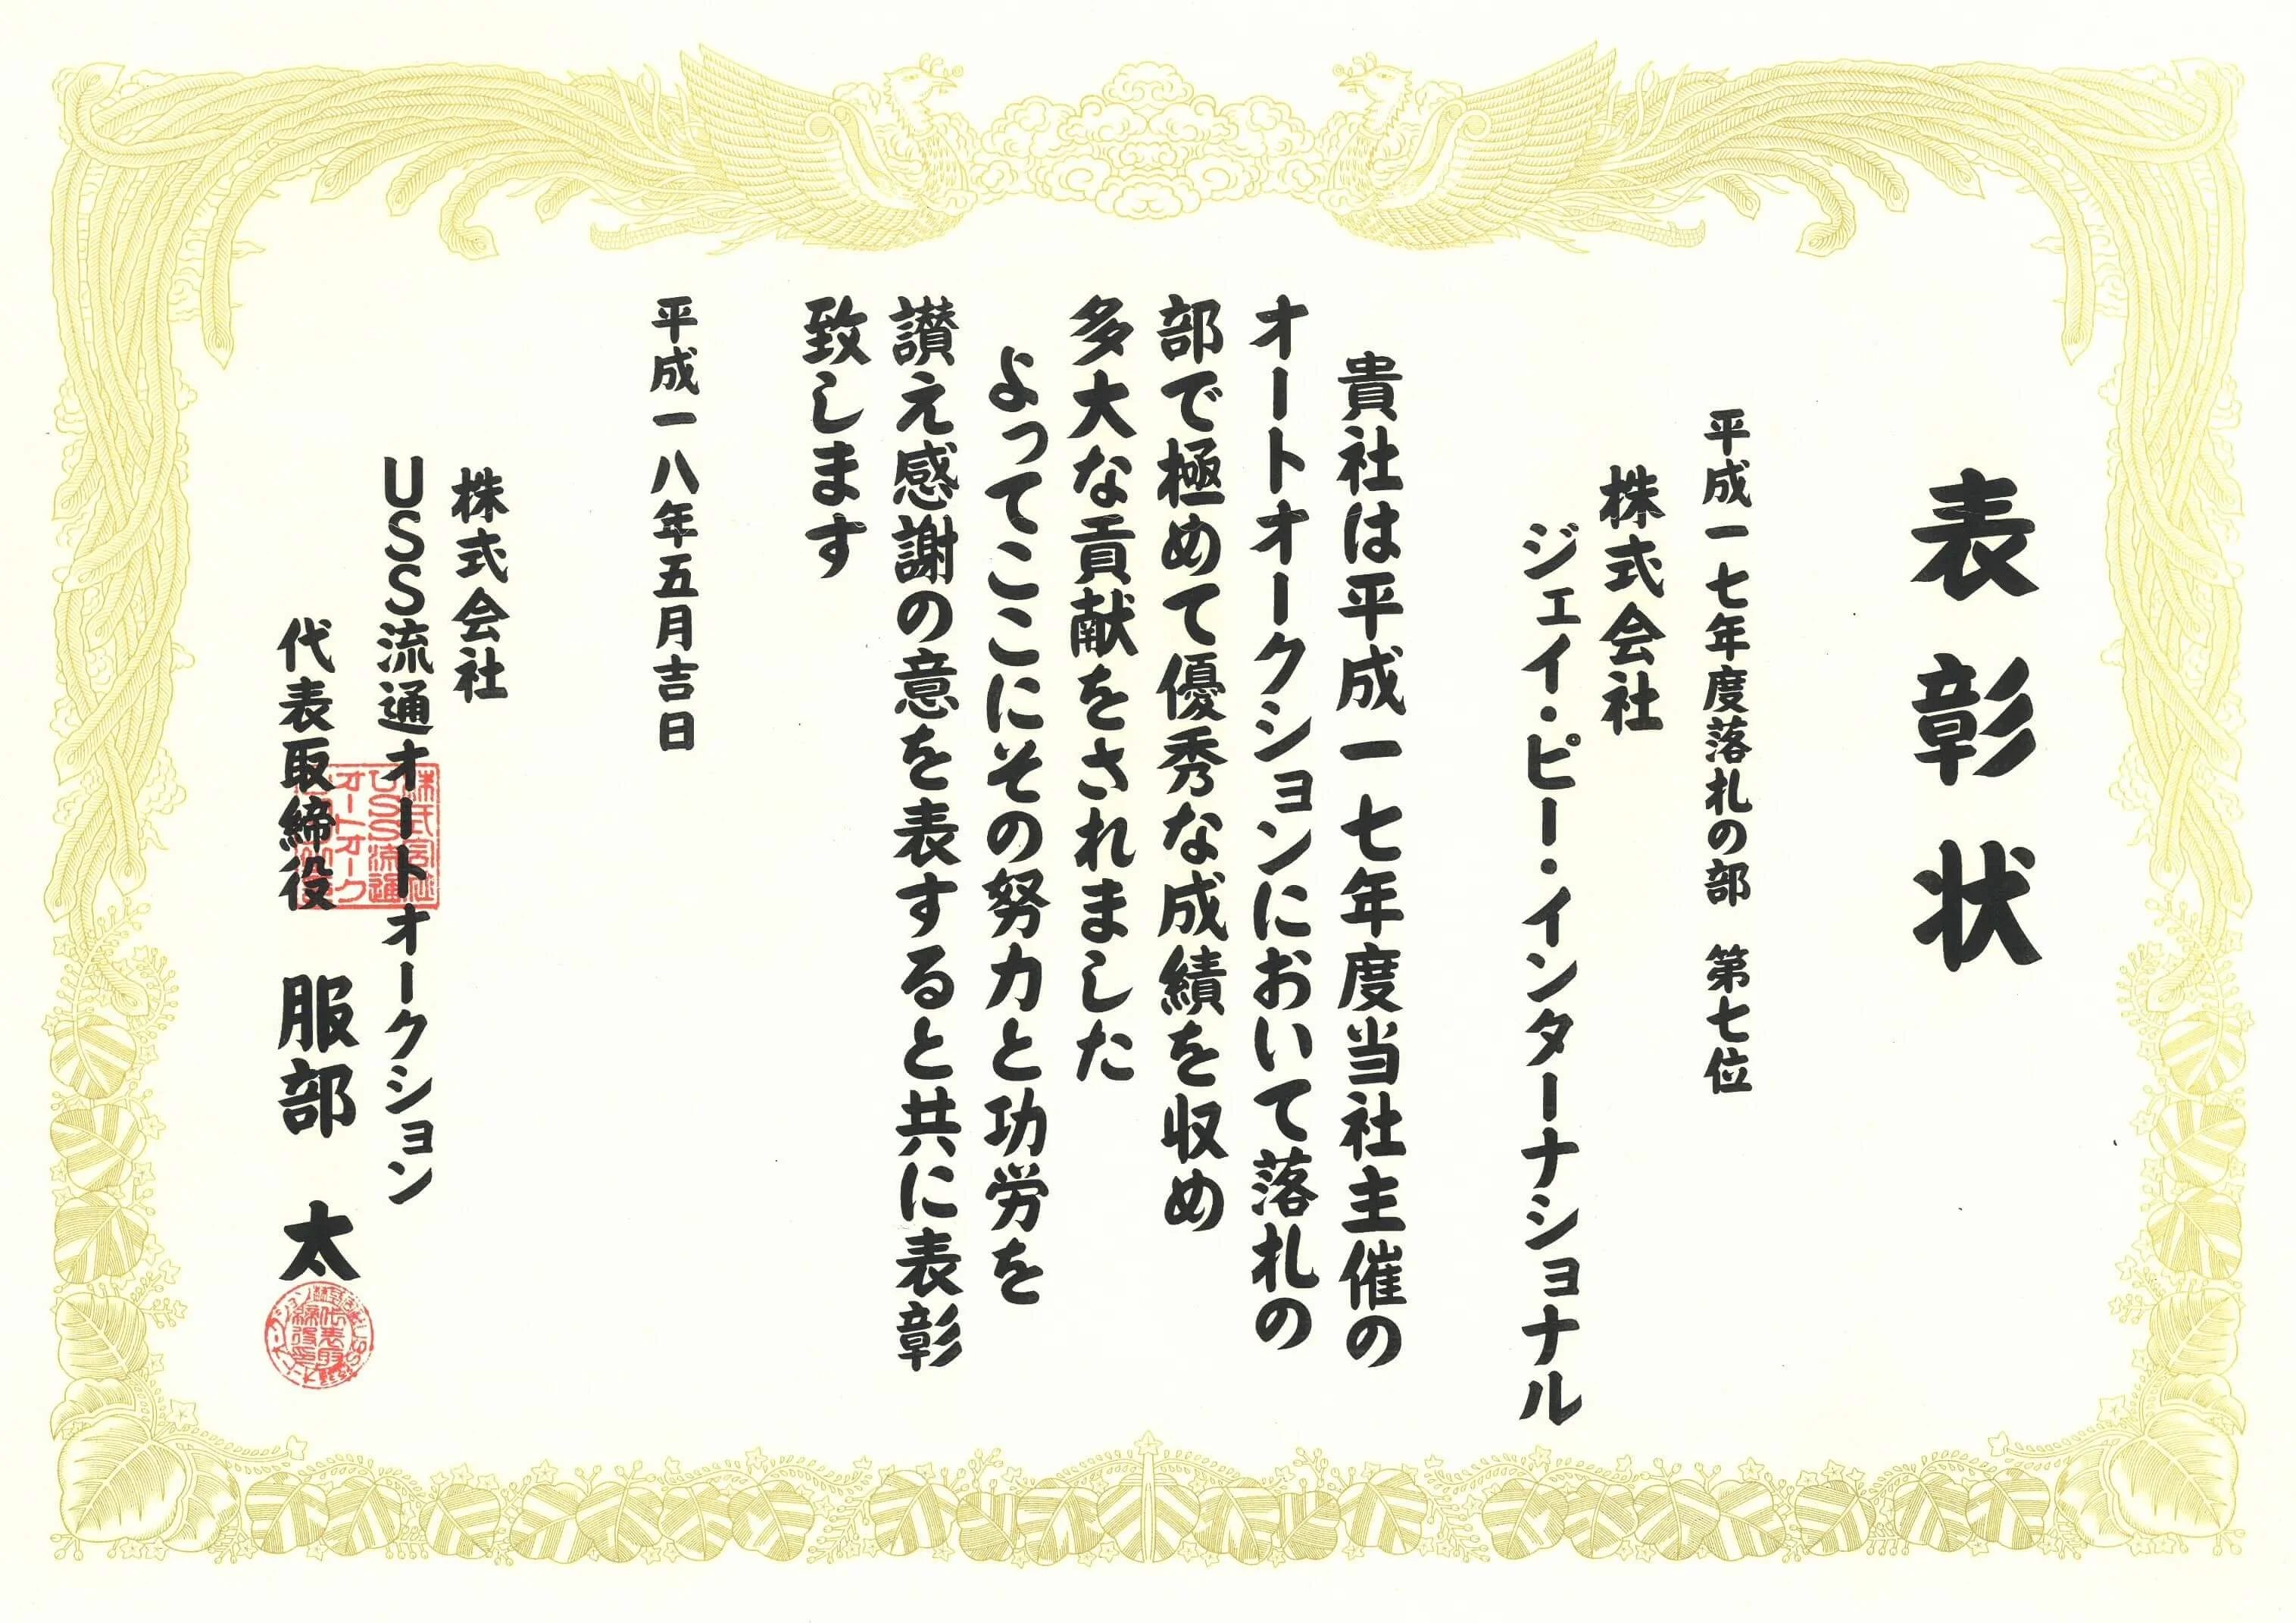 表彰状
平成一七年度落札の部　第七位
株式会社
ジェイ・ピー・インターナショナル
貴社は平成一七年度当社主催の
オートオークションにおいて落札の
部で極めて優秀な成績を収め
多大な貢献をされました
よってここにその努力と功労を
讃え感謝の意を表すると共に表彰
致します
平成一八年五月吉日
株式会社
USS流通オートオークション
代表取締役　服部　太